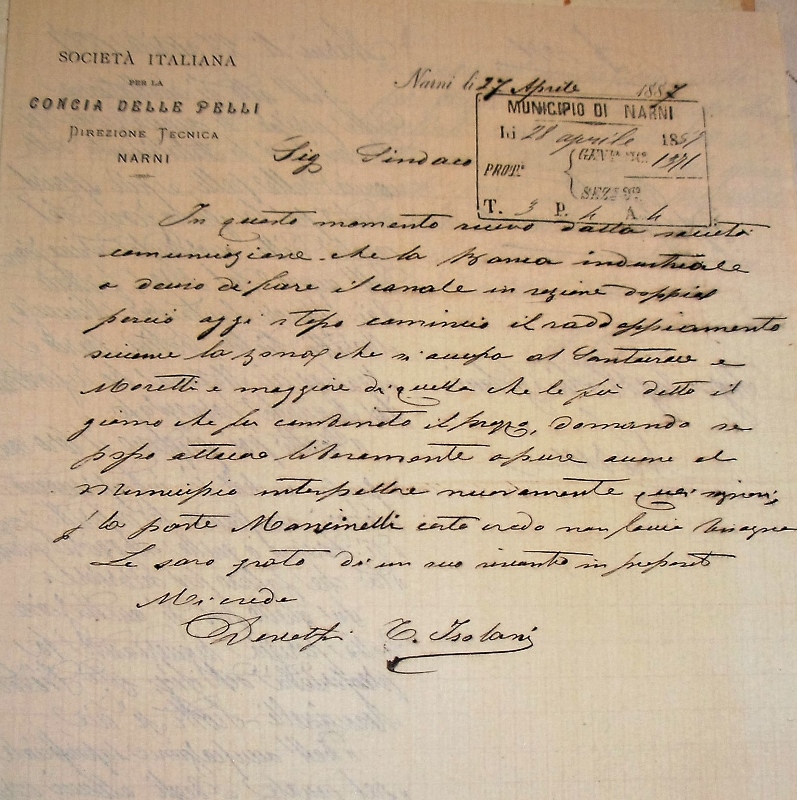 SOCIETÀ ITALIANA
PER LA
CONCIA DELLE PELLI
DIREZIONE TECNICA
NARNI
Narni li 27 Aprile 1887
MUNICIPIO DI NARNI
Li 28 aprile 1887
PROT. GEN. 1371
SEZ.
T. 3 P. 4 A. 4
Sig Sindaco
In questo momento ricevo dalla società
comunicazione che la Banca industriale
a deciso di fare il canale in sezione doppia
perciò oggi stesso comincio il raddoppiamento
siccome la zona che si occupa al e
Moretti e maggiore di quella che le fu detto il
giorno che fu combinato il prezzo, domando se
posso attacare liberamente opure anche el
Municipio interpellare nuovamente quei signori,
p la parte Mancinelli certo credo non faccia bisogno
Le saro grato di un suo riscontro in proposito
Mi creda
Devotssi C. Isolani